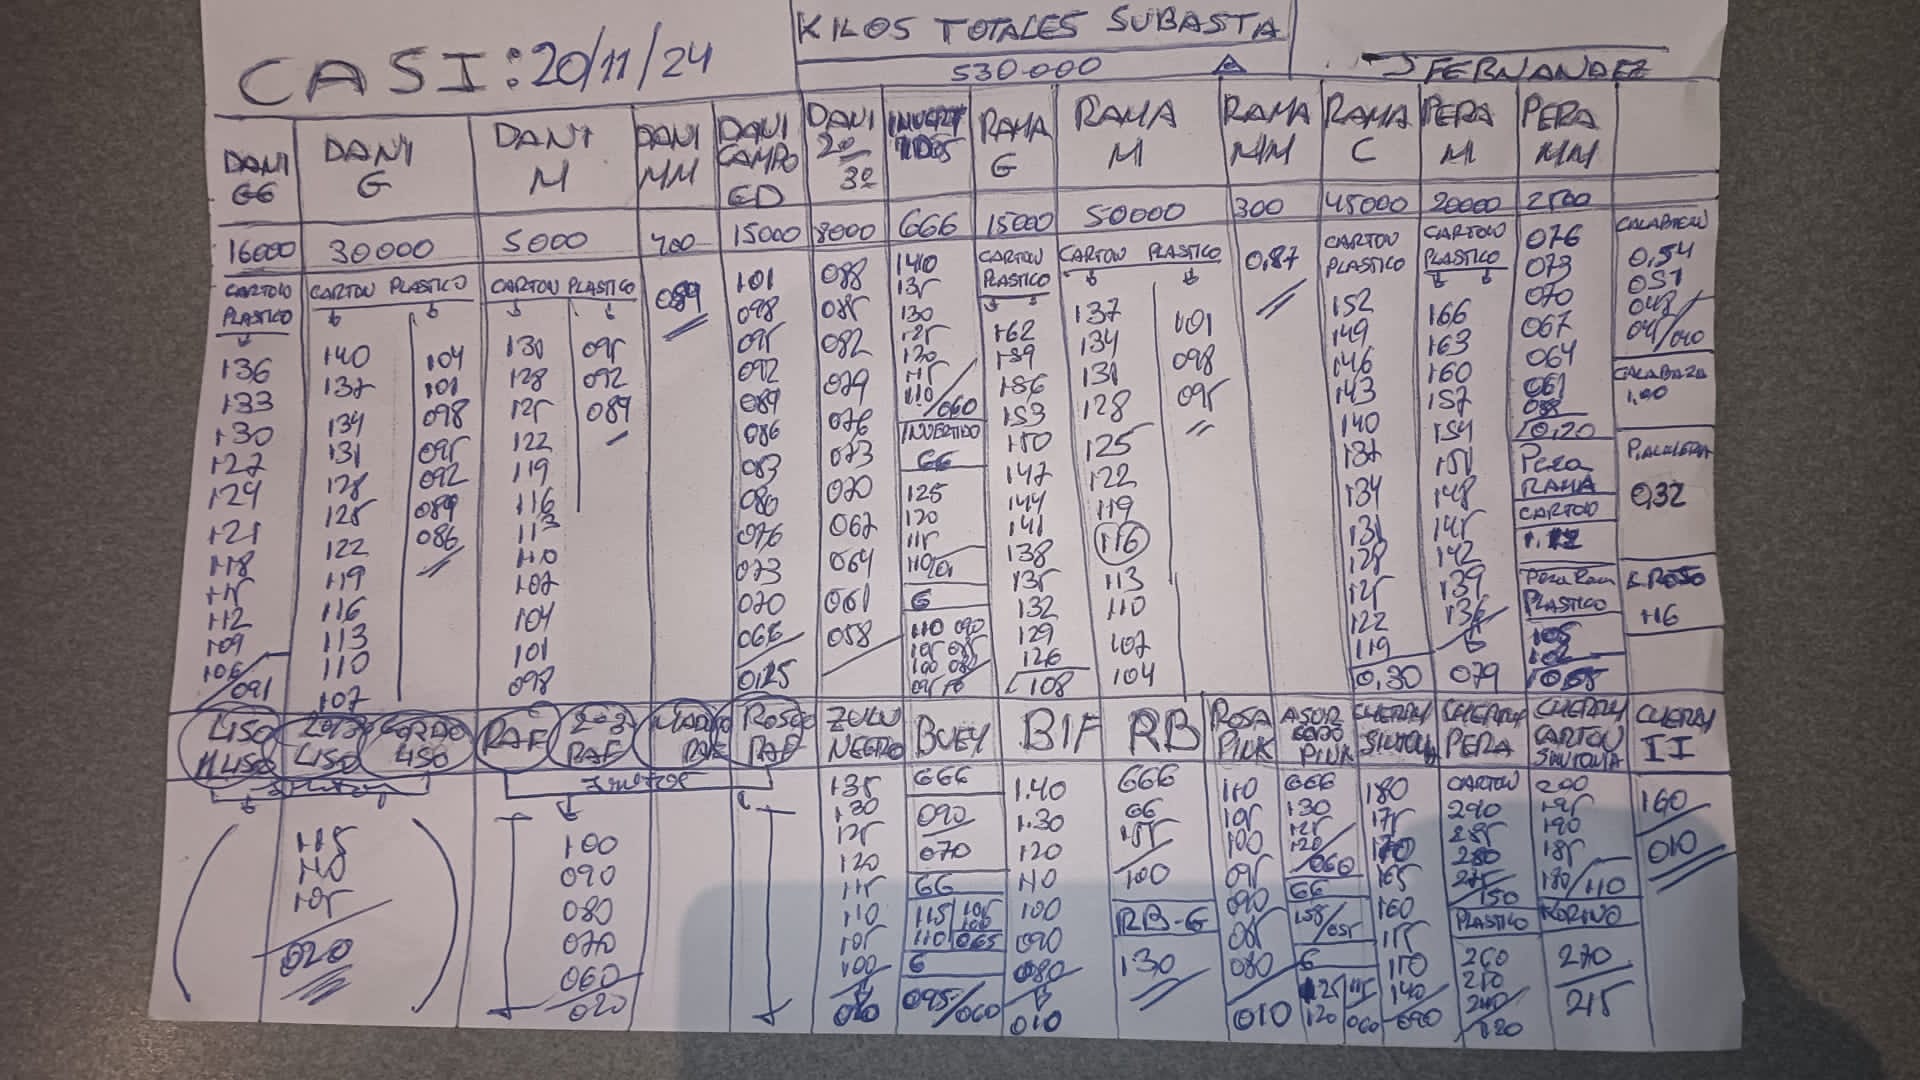 CASI: 20/11/24
KILOS TOTALES SUBASTA
530.000
J FERNANDEZ
DANI GG
DANI G
DANI M
DANI MM
DANI CAMPO ED
DANI 2º 3º
RAMA G
RAMA M
RAMA MM
RAMA C
PERA M
PERA MM
16000
30000
5000
15000
8000
666
15000
50000
300
45000
20000
2500
CARTON PLASTICO
136
133
130
127
124
121
118
115
112
109
106/091
CARTON PLASTICO
140 104
137 101
134 098
131 095
128 092
125 089
122 086
119
116
113
110
107
CARTON PLASTICO
131 095
128 092
125 089
122
119
116
113
110
107
104
101
098
089
101
098
095
092
089
086
083
080
076
073
070
066
0,25
088
085
082
079
076
073
070
067
064
061
058
140
135
130
125
120
115
110/060
INVERTIDO
GG
125
120
115
G
110 090
CARTON
PLASTICO
162
159
156
153
150
147
144
141
138
135
132
129
126
108
CARTON PLASTICO
137 101
134 098
131 095
128
125
122
119
116
113
110
107
104
0,87
CARTON
PLASTICO
152
149
146
143
140
137
134
131
128
125
122
119
0,30
CARTON
PLASTICO
166
163
160
157
154
151
148
145
142
139
136
079
076
073
070
067
064
061
0,20
PERA
RAMA
CARTON
PERA RAMA
PLASTICO
0,54
051
CALABAZA
1,00
0,32
116
LISO M LISO
GORDO LISO
RAF
2º3 RAF
ROSCO RAF
ZULU NEGRO
BUEY
BIF
RB
ROSA PINK
ASUR GORDO PINK
CHERRY PERA
CHERRY CARTON SINTONIA
CHERRY II
115
110
105
020
100
090
080
070
060
020
135
130
125
120
115
110
105
100
666
090
070
66
115 105
100
110 065
G
095/060
1.40
1.30
120
110
100
090
080
010
666
66
155
100
RB-G
130
110
105
100
095
090
085
080
010
666
130
125
120
060
66
155/055
G
125 115
120 060
180
175
170
165
160
155
150
140
090
CARTON
290
285
280
275
150
PLASTICO
260
250
240
120
200
195
190
185
180/110
270
215
160
010